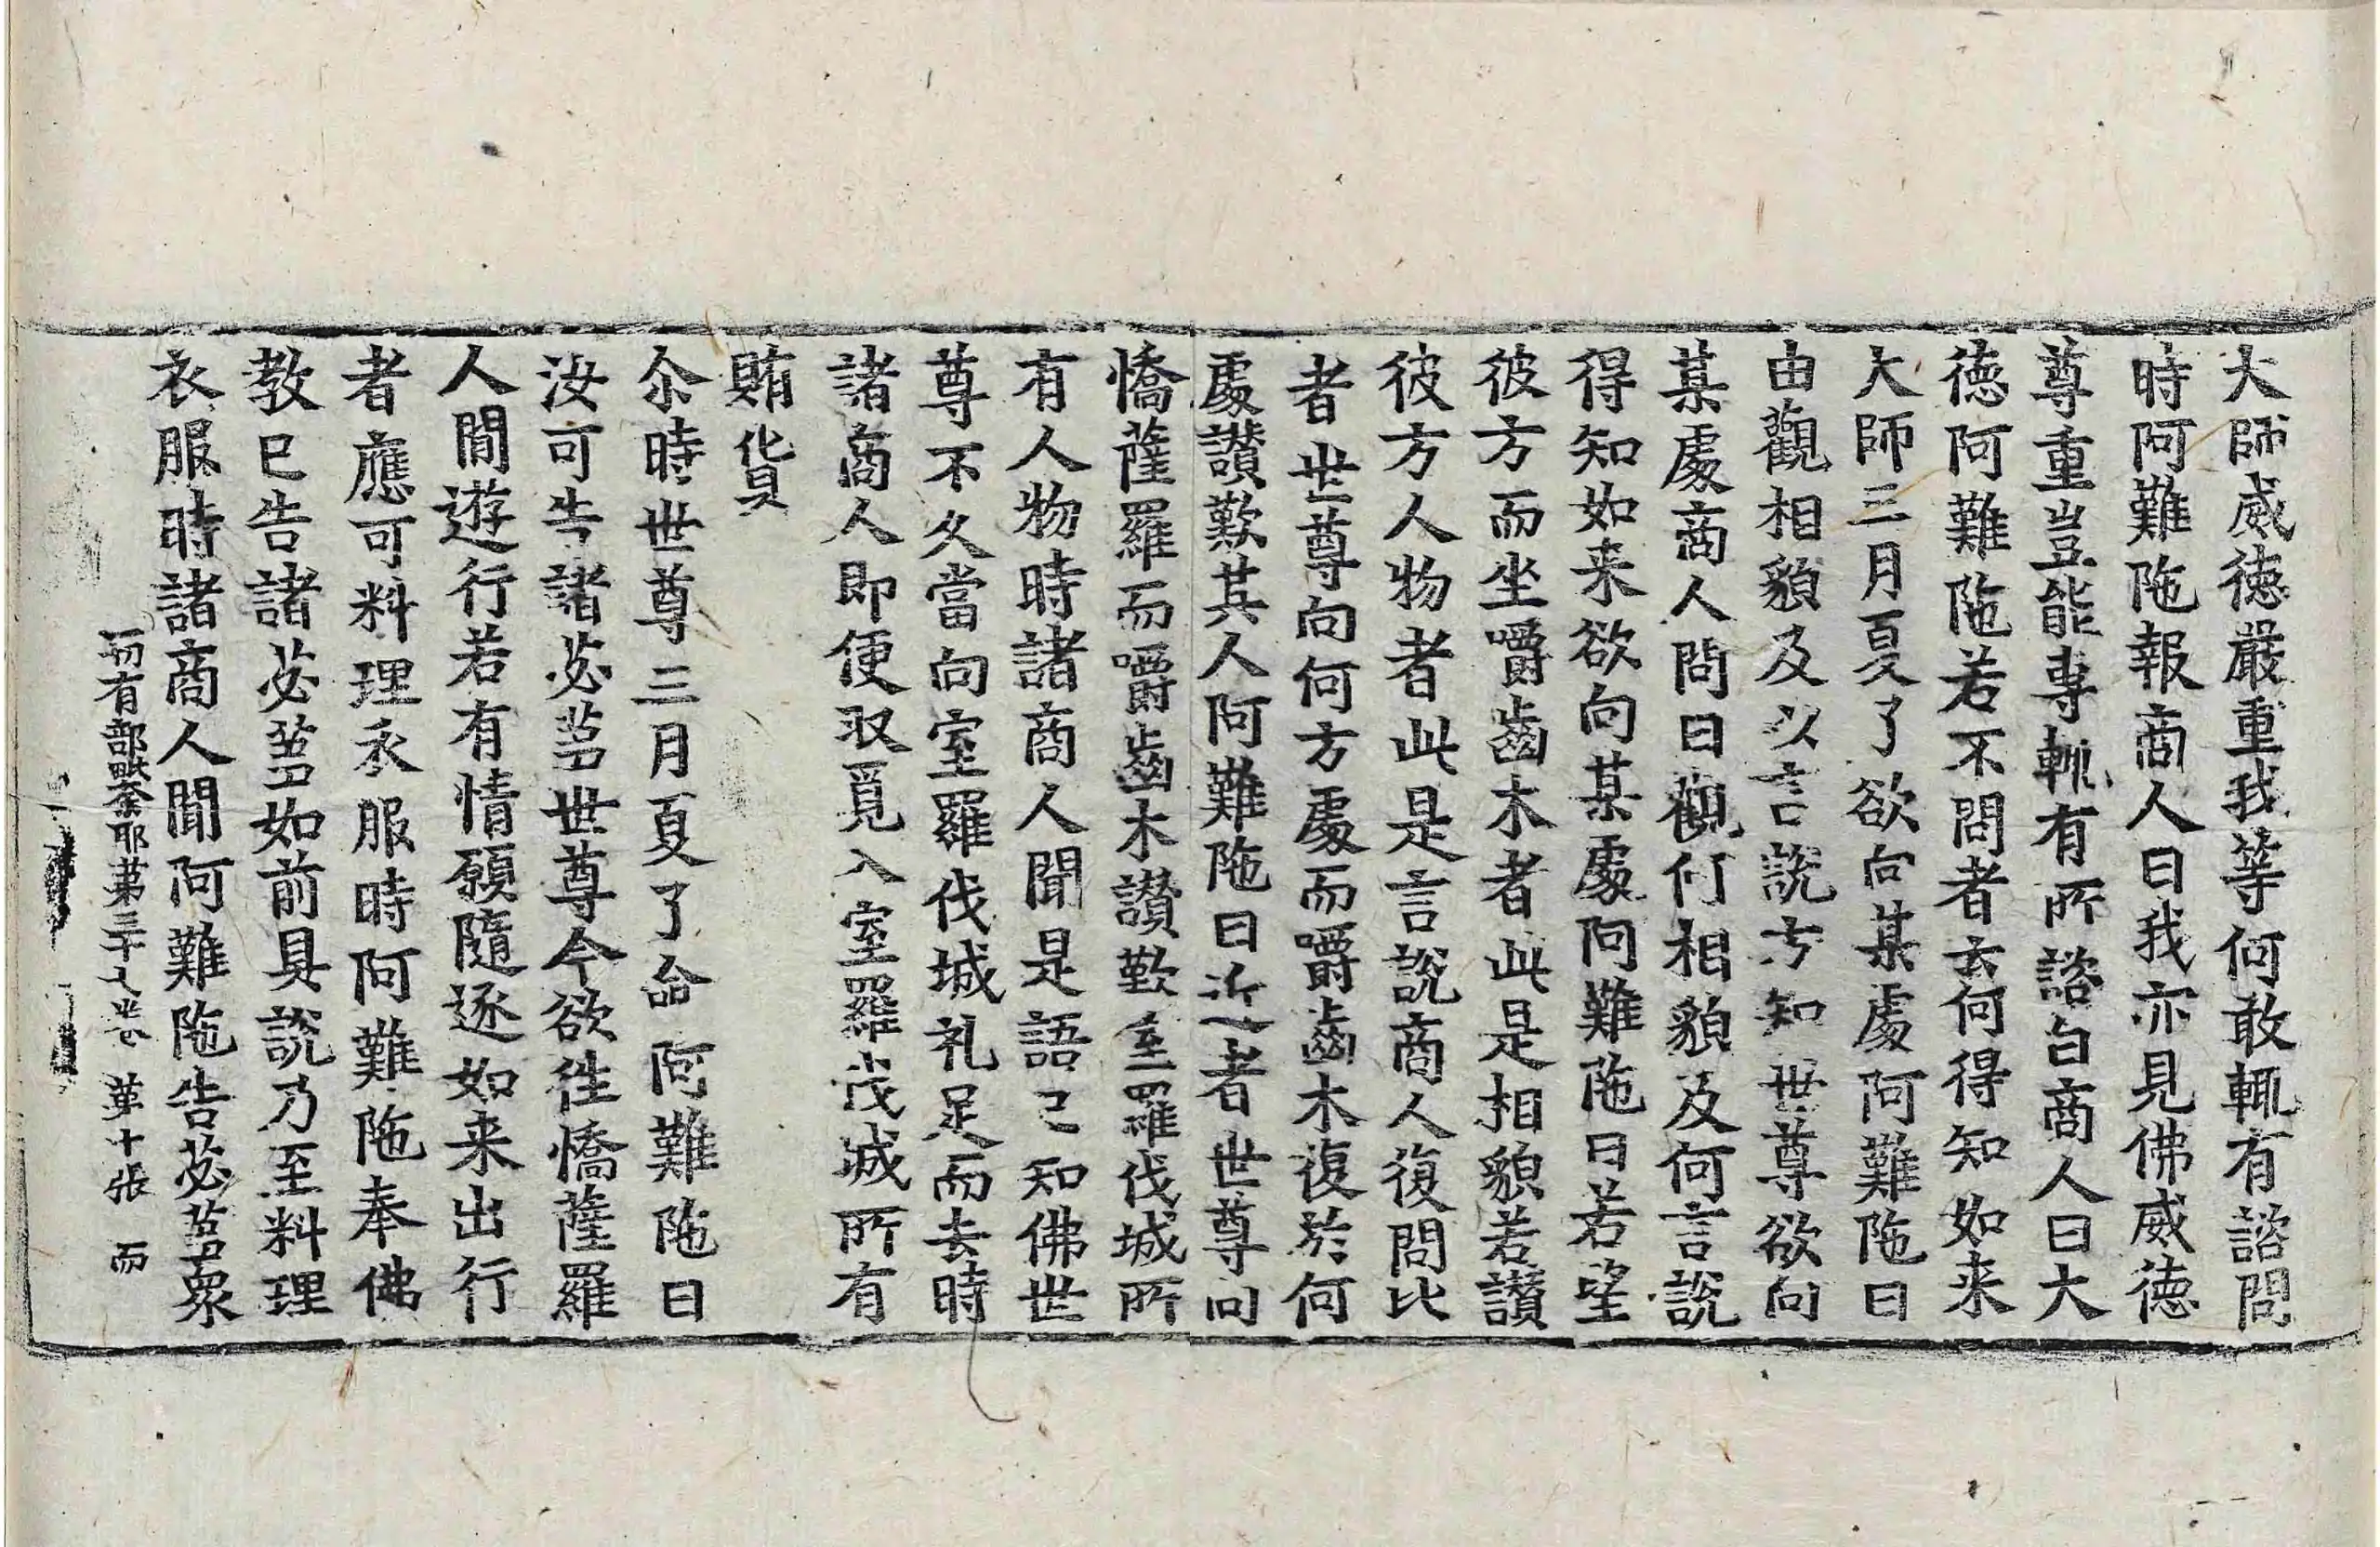 大師威德嚴重我等何敢輒有諮問
時阿難陁報商人曰我亦見佛威德
尊重豈能專輒有所諮白商人曰大
德阿難陁若不問者云何得知如来
大師三月夏了欲向某處阿難陁曰
由觀相貌及以言說方知世尊欲向
某處商人問曰觀何相貌及何言說
得知如来欲向某處阿難陁曰若望
彼方而坐嚼齒木者此是相貌若讃
彼方人物者此是言說商人復問比
者世尊向何方處而嚼齒木復於何
處讃歎其人阿難陁曰近者世尊向
憍薩羅而嚼齒木讃歎室羅伐城所
有人物時諸商人聞是語已知佛世
尊不久當向室羅伐城礼足而去時
諸商人即便収覓入室羅茷城所有
賄貨
尒時世尊三月夏了命阿難陁曰
汝可告諸苾芻世尊今欲徃憍薩羅
人閒遊行若有情願隨逐如来出行
者應可料理衣服時阿難陁奉佛
教已告諸苾芻如前具說乃至料理
衣服時諸商人聞阿難陁告苾芻衆
一切有部毗奈耶第三十八卷 第十張 而